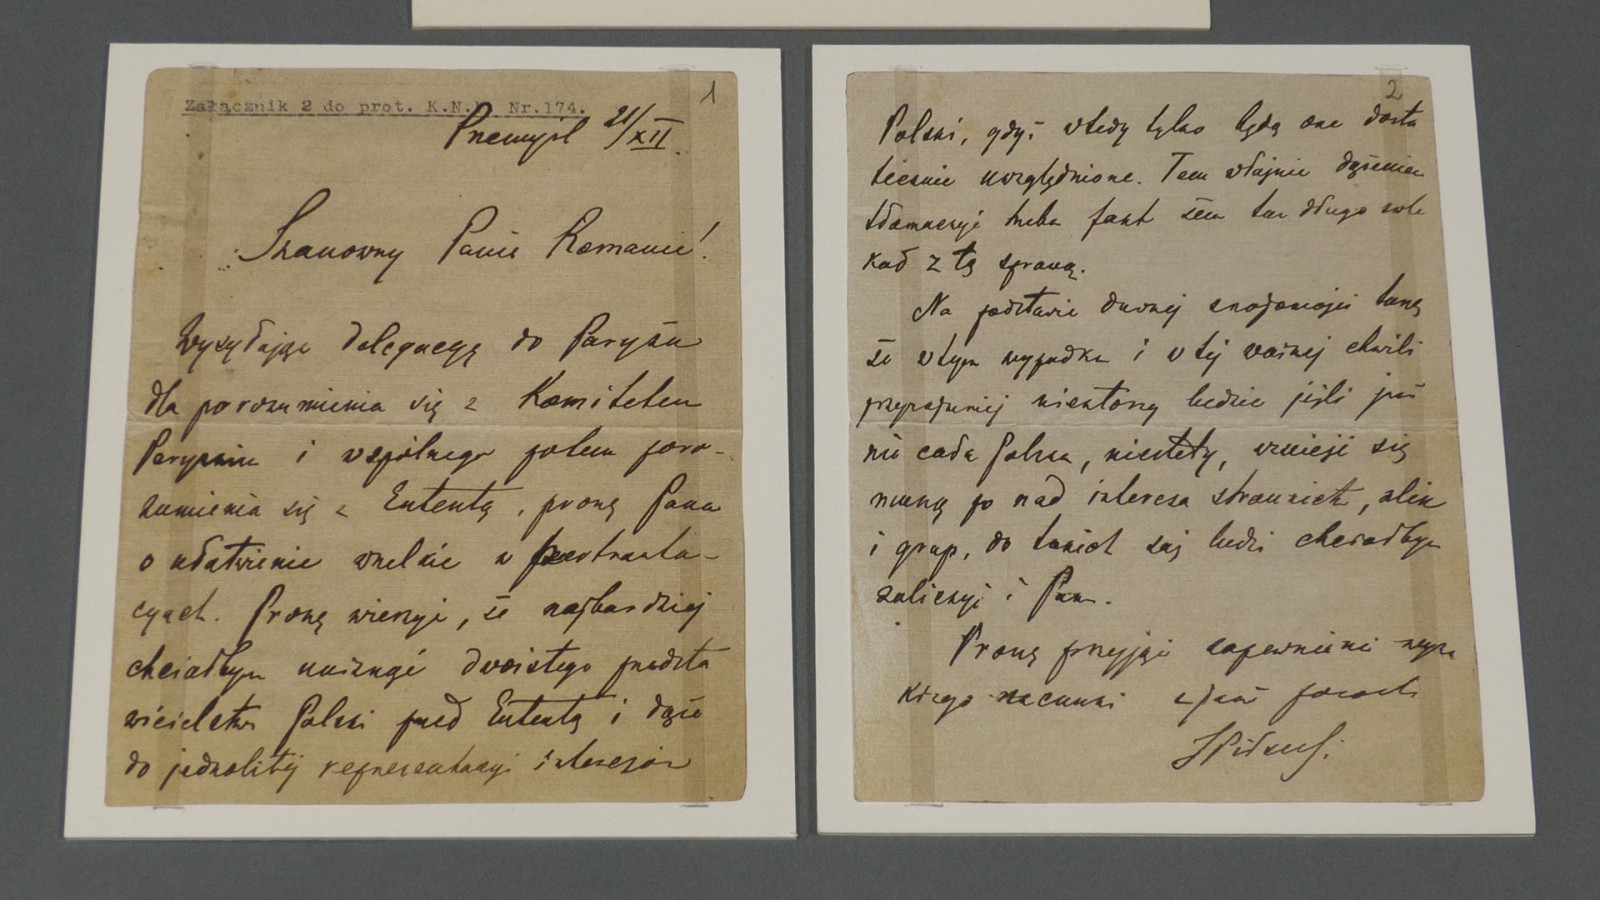 Załącznik 2 do prot. K.N. Nr.174.
1
Przemyśl 21/XII.
Szanowny Panie Romanie!
Wysyłając delegację do Paryża
dla porozumienia się z Komitetem
Paryskim i wspólnego potem poro-
zumienia się z Ententą, proszę Pana
o ułatwienie wszelkie w pertrakta-
cyach. Proszę wierzyć, że najbardziej
chciałbym uniknąć dwoistego przedsta
wicielstwa Polski przed Ententą i dążę
do jednolitej reprezentacyi interesów
2
Polski, gdyż wtedy tylko będą one dosta
tecznie uwzględnione. Tem właśnie dążeniem
tłomaczyć trzeba fakt żem tak długo zwle
kał z tą sprawą.
Na podstawie dawnej znajomości tuszę
że w tym wypadku i w tej ważnej chwili
przynajmniej niektórzy ludzie jeśli już
nie cała Polska, niestety, wznieść się
muszą po nad interesa stronnictw, klik
i grup, do takich zaś ludzi chciałbym
zaliczyć i Pana.
Proszę przyjąć zapewnienie wyso
kiego szacunku z jakim pozostaję
JPiłsudski